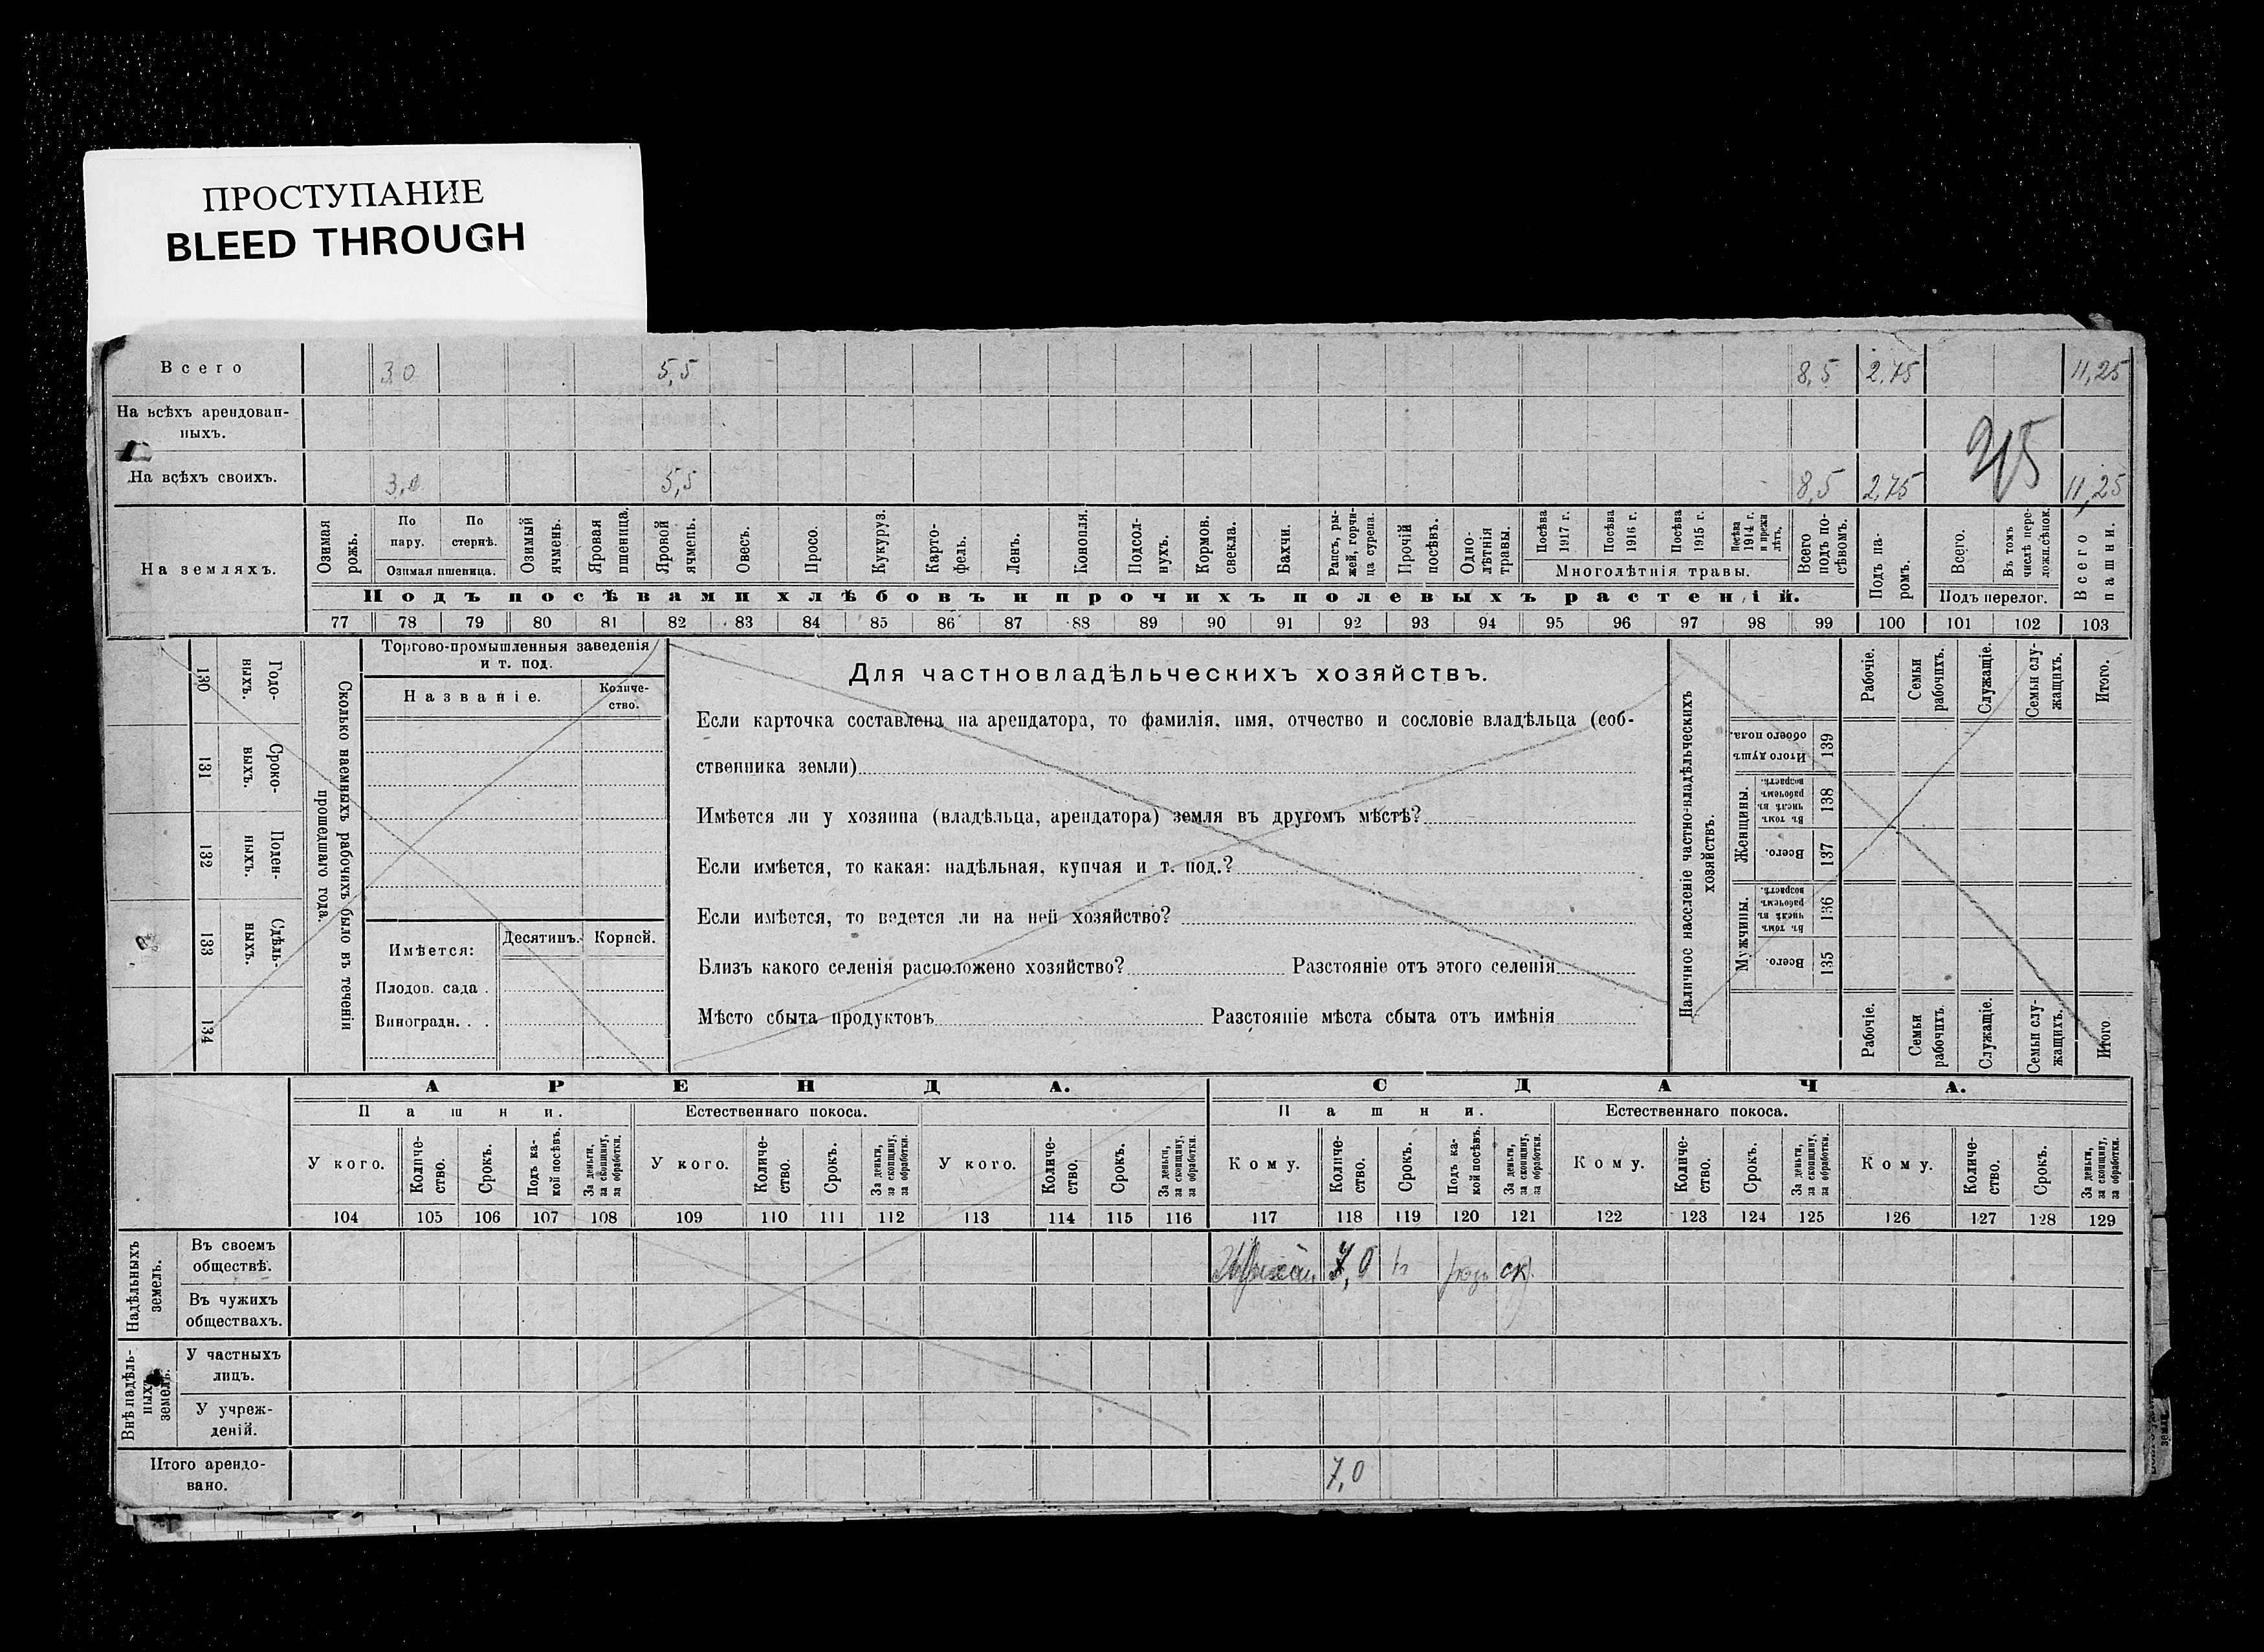 ПРОСТУПАНИЕ
BLEED THROUGH
Всего 3,0 5,5 8,5 2,75 11,25
На всѣхъ арендован-
ныхъ.
На всѣхъ своихъ. 3,0 5,5 8,5 2,75 11,25
На земляхъ.
Озимая рожь.
По пару.
По стернѣ.
Озимая пшеница.
Озимый ячмень.
Яровая пшеница.
Яровой ячмень.
Овесъ.
Просо.
Кукуруз.
Карто-
фель.
Ленъ.
Конопля.
Подсол-
нухъ.
Кормов. свекла.
Бахчи.
Рапсъ, ры-
жей, горчи-
ца сурепа.
Прочій посѣвъ.
Одно-
лѣтнія травы.
Посѣва 1917 г.
Посѣва 1916 г.
Посѣва 1915 г.
Посѣва 1914 г. и прежн. лѣтъ.
Многолѣтнія травы.
Всего подъ по-
сѣвомъ.
Подъ па-
ромъ.
Всего.
Въ томъ числѣ пере-
ложн. сѣнок.
Подъ перелог.
Всего пашни.
Подъ посѣвами хлѣбовъ и прочихъ полевыхъ растеній.
77 78 79 80 81 82 83 84 85 86 87 88 89 90 91 92 93 94 95 96 97 98 99 100 101 102 103
Годо-
выхъ.
130
Сроко-
выхъ.
131
Поден-
ныхъ.
132
Сдѣль-
ныхъ.
133
134
Сколько наемныхъ рабочихъ было въ теченіи
прошедшаго года.
Торгово-промышленныя заведенія
и т. под.
Названіе.
Количе-
ство.
Имѣется:
Десятинъ.
Корней.
Плодов. сада .
Виноградн. . .
Для частновладѣльческихъ хозяйствъ.
Если карточка составлена на арендатора, то фамилія, имя, отчество и сословіе владѣльца (соб-
ственника земли)
Имѣется ли у хозяина (владѣльца, арендатора) земля въ другомъ мѣстѣ?
Если имѣется, то какая: надѣльная, купчая и т. под.?
Если имѣется, то ведется ли на ней хозяйство?
Близъ какого селенія расположено хозяйство? Разстояніе отъ этого селенія
Мѣсто сбыта продуктовъ Разстояніе мѣста сбыта отъ имѣнія
Наличное населеніе частно-владѣльческихъ
хозяйствъ.
Рабочіе.
Семьи рабочихъ.
Служащіе.
Семьи слу-
жащихъ.
Итого.
Итого душъ обоего пола.
139
Женщины.
Въ томъ числѣ въ рабочемъ возрастѣ.
138
Всего.
137
Мужчины.
Въ томъ числѣ въ рабочемъ возрастѣ.
136
Всего.
135
Рабочіе.
Семьи рабочихъ.
Служащіе.
Семьи слу-
жащихъ.
Итого
АРЕНДА. СДАЧА.
Пашни. Естественнаго покоса. Пашни. Естественнаго покоса.
У кого.
Количе-
ство.
Срокъ.
Подъ ка-
кой посѣвъ.
За деньги, за скопщину, за обработки.
У кого.
Количе-
ство.
Срокъ.
За деньги, за скопщину, за обработки.
У кого.
Количе-
ство.
Срокъ.
За деньги, за скопщину, за обработки.
Кому.
Количе-
ство.
Срокъ.
Подъ ка-
кой посѣвъ.
За деньги, за скопщину, за обработки.
Кому.
Количе-
ство.
Срокъ.
За деньги, за скопщину, за обработки.
Кому.
Количе-
ство.
Срокъ.
За деньги, за скопщину, за обработки.
104 105 106 107 108 109 110 111 112 113 114 115 116 117 118 119 120 121 122 123 124 125 126 127 128 129
Надѣльныхъ земель.
Въ своемъ
обществѣ. 7,0 ск.
Въ чужихъ
обществахъ.
Внѣ надѣль-
ныхъ земель.
У частныхъ
лицъ.
У учреж-
деній.
Итого арендо-
вано. 7,0